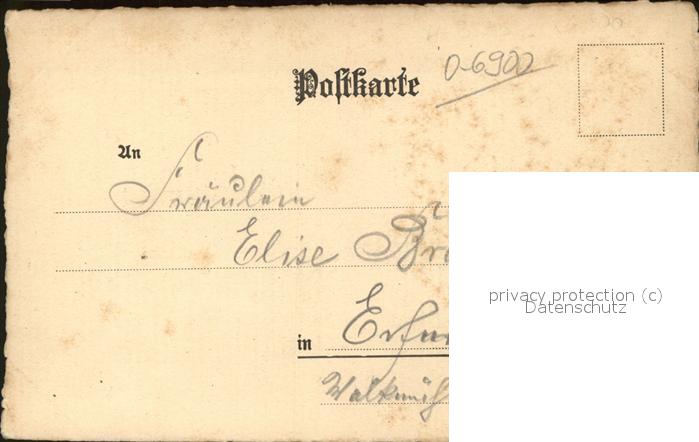 Postkarte
0-6900
An
Fräulein
Elise
in
privacy protection (c)
Datenschutz